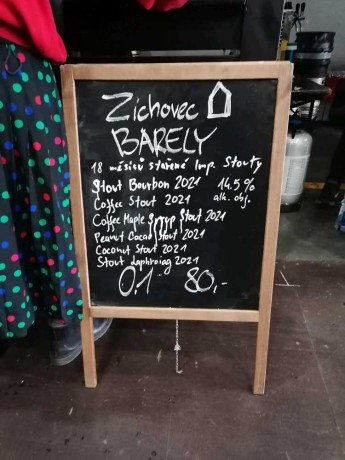 Zichovec
BARELY
18 měsíců stařené Imp. Stouty
Stout Bourbon 2021 14.5%
Coffee Stout 2021 alk. obj.
Coffee Maple Syrup Stout 2021
Peanut Cacao Stout 2021
Coconut Stout 2021
Stout Laphroiag 2021
0,1 80,-